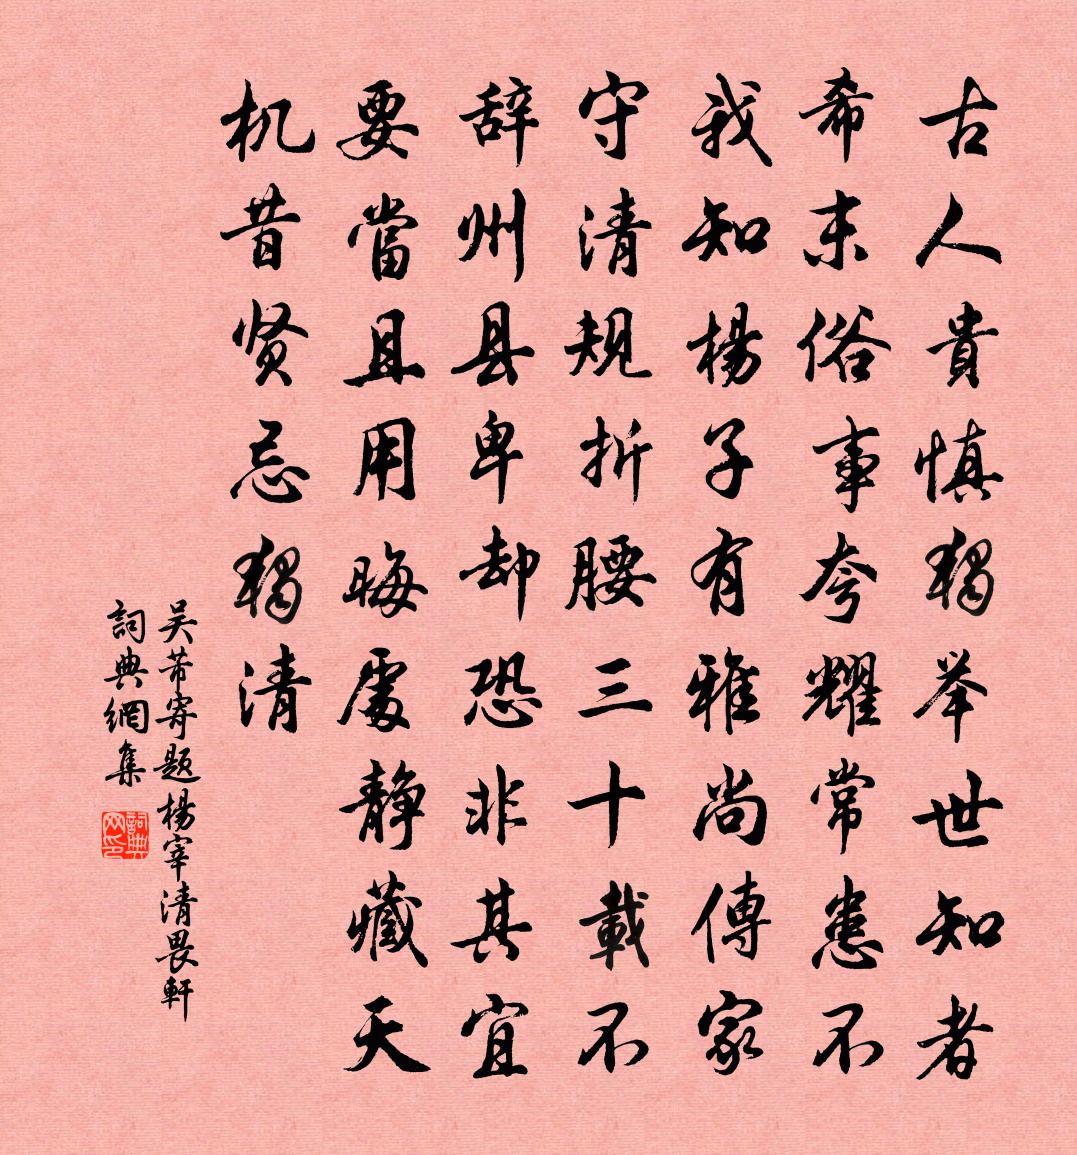 古人貴慎獨举世知者
希末俗事夸耀常患不
我知楊子有雅尚傳家
守清規折腰三十載不
辞州县卑却恐非其宜
要當且用晦處静藏天
机昔贤忌獨清
吴芾寄題楊宰清畏軒
詞典網集
詞典网印